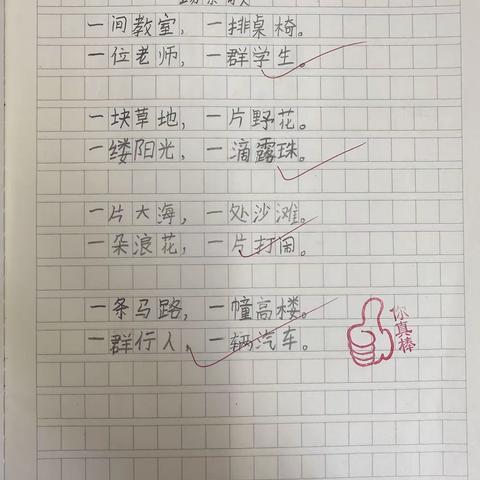 一间教室，一排桌椅。
一位老师，一群学生。
一块草地，一片野花。
一缕阳光，一滴露珠。
一片大海，一处沙滩。
一朵浪花，一片打闹。
一条马路，一幢高楼。
一群行人，一辆汽车。
你真棒